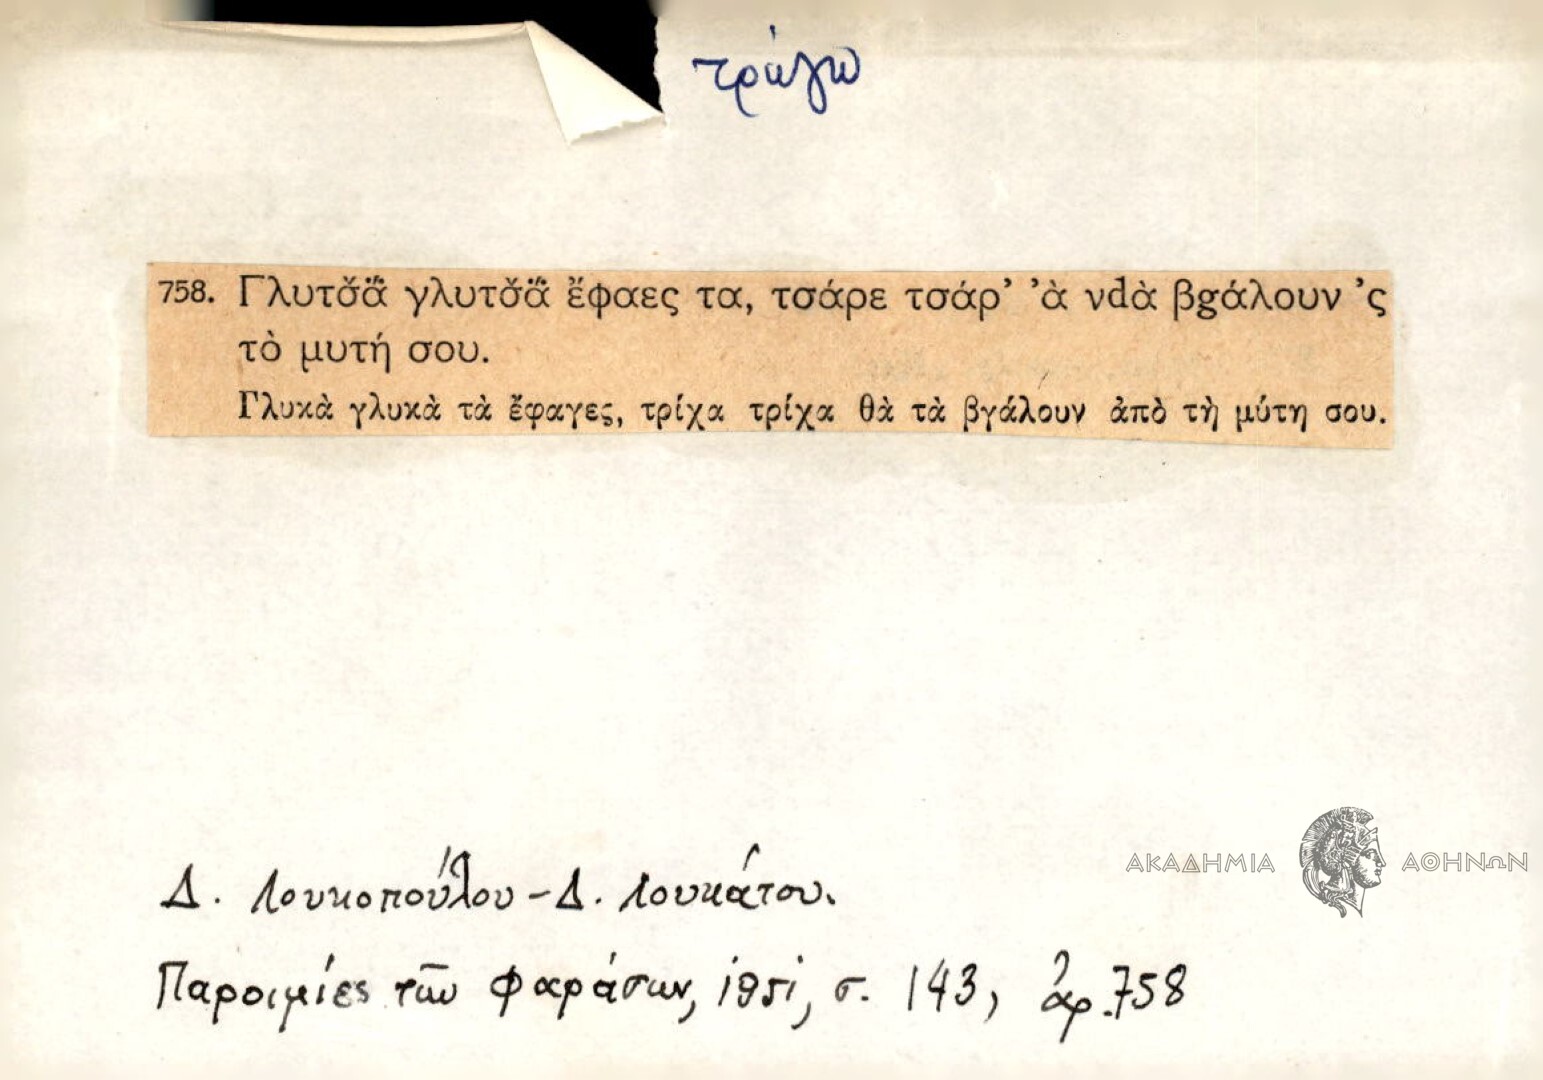 τρώγω
758. Γλυτσ̆ᾰ̈́ γλυτσ̆ᾰ̈́ ἔφαες τα, τσάρε τσάρ’ ’ὰ νdὰ βgάλουν ’ς
τὸ μυτή σου.
Γλυκὰ γλυκὰ τὰ ἔφαγες, τρίχα τρίχα θὰ τὰ βγάλουν ἀπὸ τὴ μύτη σου.
ΑΚΑΔΗΜΙΑ ΑΘΗΝΩΝ
Δ. Λουκοπούλου - Δ. Λουκάτου.
Παροιμίες τῶν Φαράσων, 1951, σ. 143, ἀρ. 758